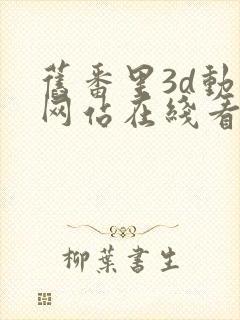 舊番里3d動
网佔在綫看
柳葉書生